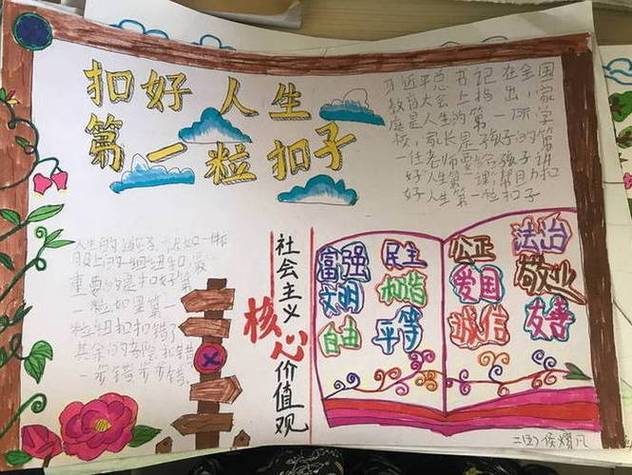 扣好人生
第一粒扣子
习近平总书记在全国
教育大会上指出，家
庭是人生的第一所学
校，家长是孩子的第
一任老师要给孩子讲
好人生第一课，帮助扣
好人生第一粒扣子
人生的
重要的是扣好第
一粒如果第一
粒纽扣扣错了
其余的都会扣错
一步错步步错
社会主义
核心价值观
富强
文明
自由
民主
和谐
平等
公正
爱国
诚信
法治
敬业
友善
二(5)侯熠凡